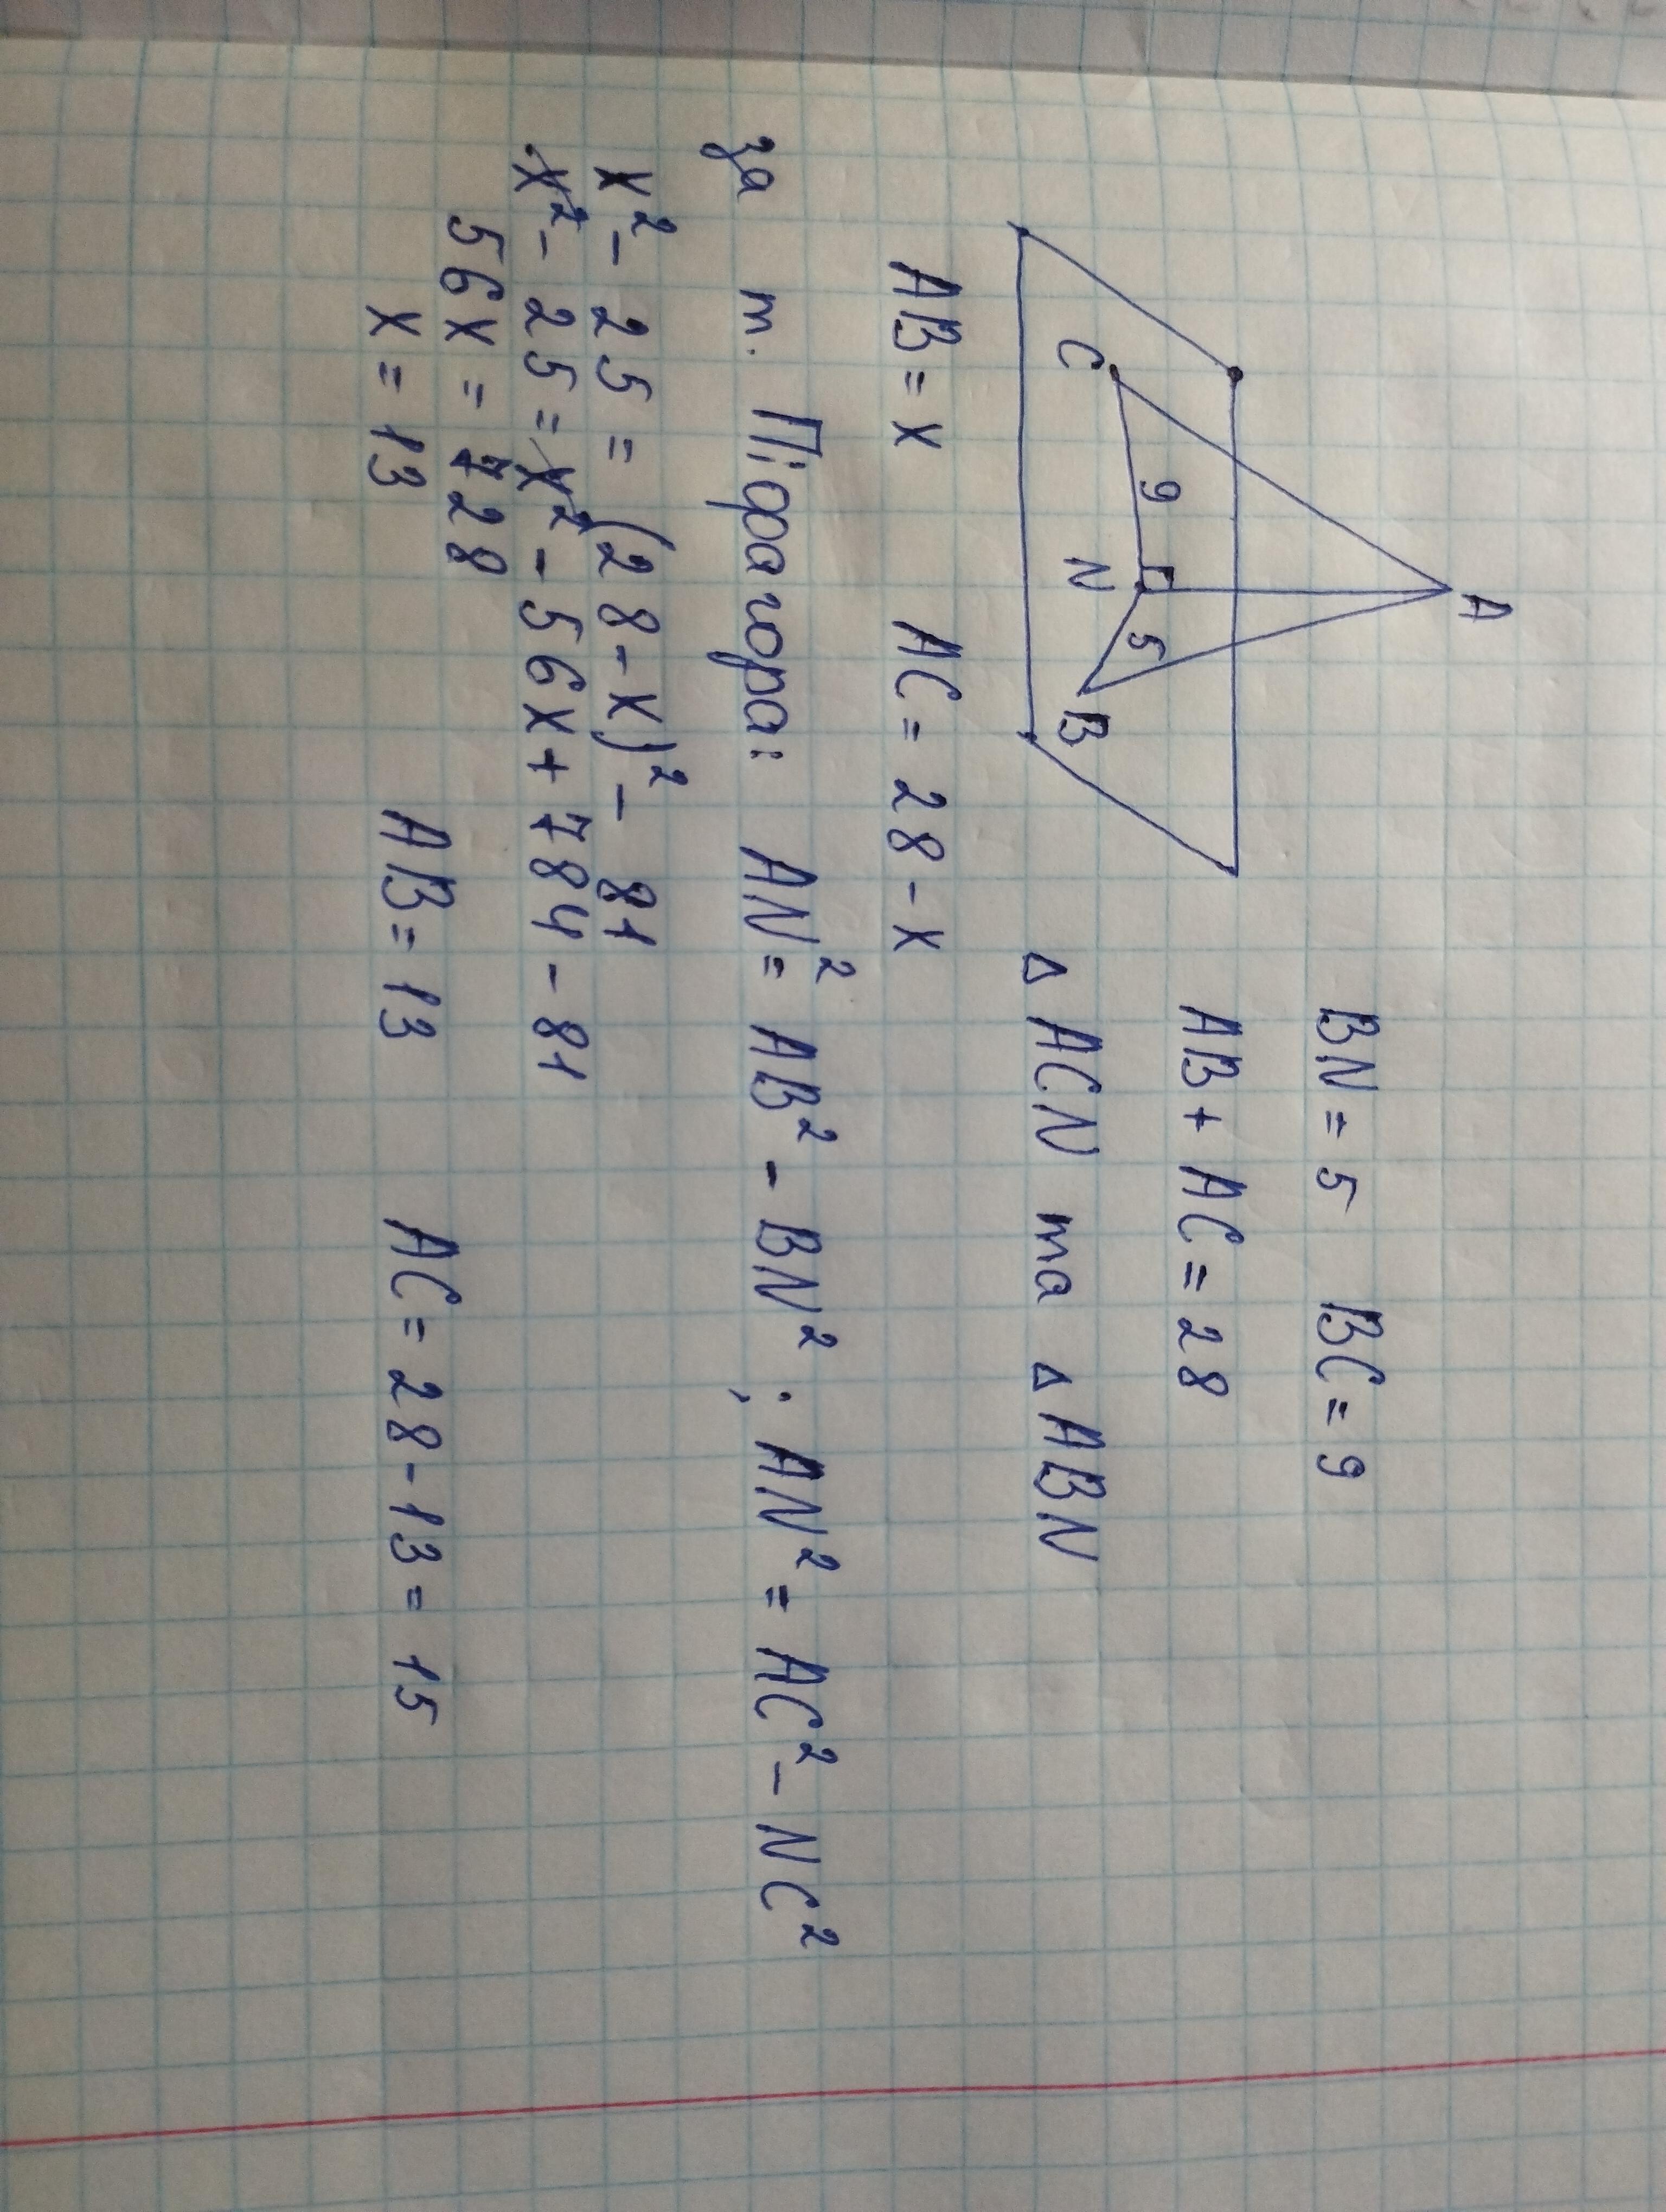 A
BN = 5 BC = 9
C 9 N 5 B
AB + AC = 28
△ ACN та △ ABN
AB = x AC = 28 - x
за т. Піфагора: AN² = AB² - BN² ; AN² = AC² - NC²
x² - 25 = (28 - x)² - 81
x² - 25 = x² - 56x + 784 - 81
56x = 728
x = 13 AB = 13 AC = 28 - 13 = 15